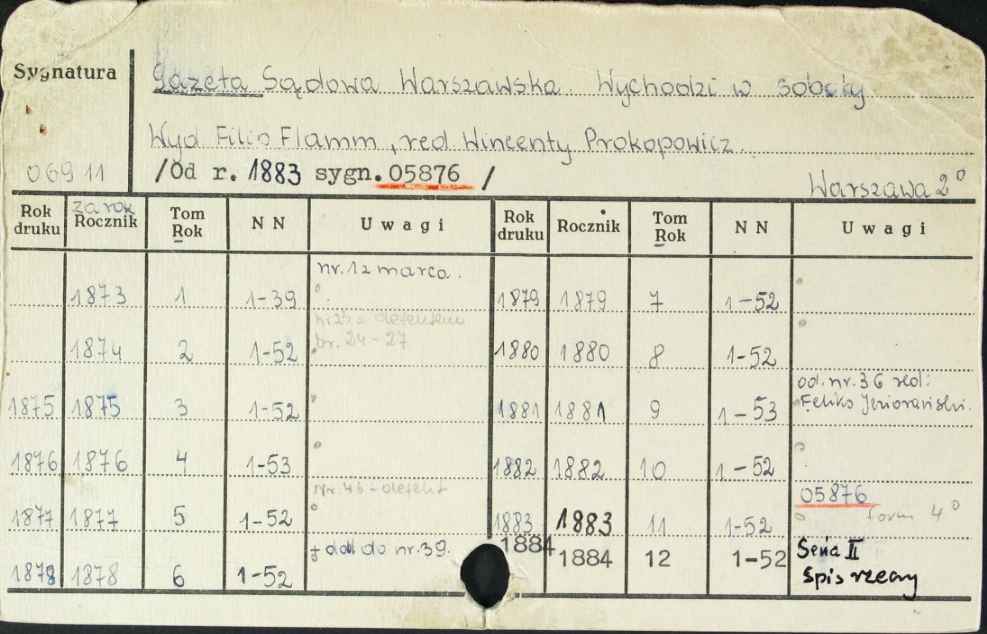 Sygnatura
Gazeta Sądowa Warszawska. Wychodzi w soboty
Wyd Filip Flamm, red Wincenty Prokopowicz.
06911 /Od r. 1883 sygn. 05876 /
Warszawa 2°
Rok druku za rok Rocznik Tom Rok NN Uwagi Rok druku Rocznik Tom Rok NN Uwagi
nr. 1 z marca.
1873 1 1-39 1879 1879 7 1-52
nr 23 z defektem
nr. 24-27
1874 2 1-52 1880 1880 8 1-52
od nr. 36 red:
1875 1875 3 1-52 1881 1881 9 1-53 Feliks Jeziorański.
1876 1876 4 1-53 1882 1882 10 1-52
Nr. 46 - defekt 05876
1877 1877 5 1-52 1883 1883 11 1-52 form 4°
do nr. 39. 1884 1884 12 1-52 Seria II
1878 1878 6 1-52 Spis rzeczy